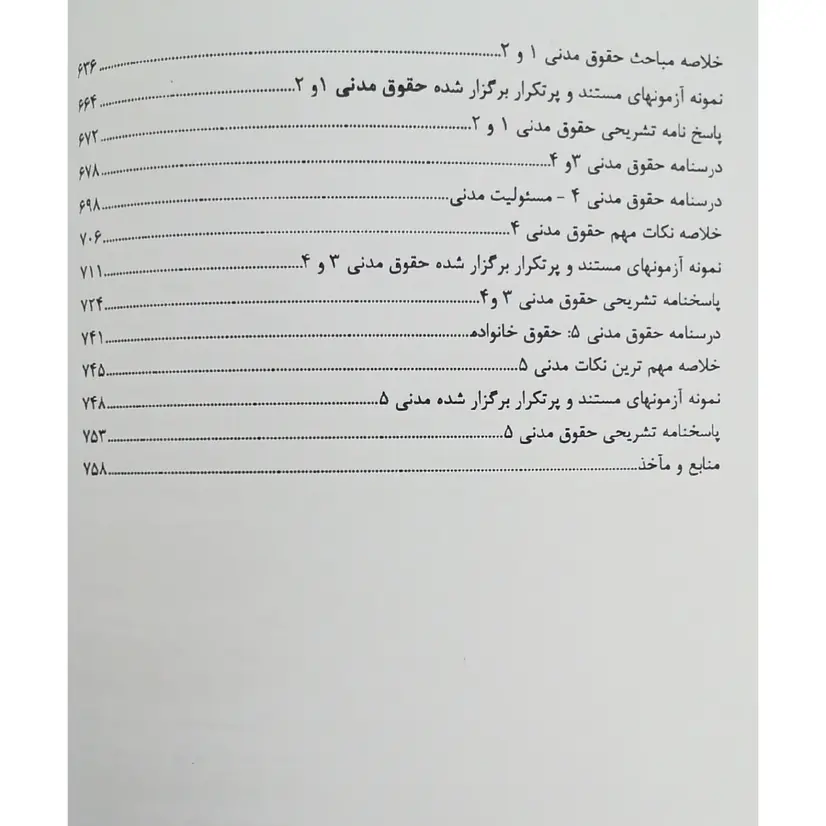 خلاصه مباحث حقوق مدنی ۱ و ۲................۶۳۶
نمونه آزمونهای مستند و پرتکرار برگزار شده حقوق مدنی ۱و ۲................۶۶۴
پاسخ نامه تشریحی حقوق مدنی ۱ و ۲................۶۷۲
درسنامه حقوق مدنی ۳و ۴................۶۷۸
درسنامه حقوق مدنی ۴ - مسئولیت مدنی................۶۹۸
خلاصه نکات مهم حقوق مدنی ۴................۷۰۶
نمونه آزمونهای مستند و پرتکرار برگزار شده حقوق مدنی ۳ و ۴................۷۱۱
پاسخنامه تشریحی حقوق مدنی ۳ و۴................۷۲۴
درسنامه حقوق مدنی ۵: حقوق خانواده................۷۴۱
خلاصه مهم ترین نکات مدنی ۵................۷۴۵
نمونه آزمونهای مستند و پرتکرار برگزار شده مدنی ۵................۷۴۸
پاسخنامه تشریحی حقوق مدنی ۵................۷۵۳
منابع و مآخذ................۷۵۸